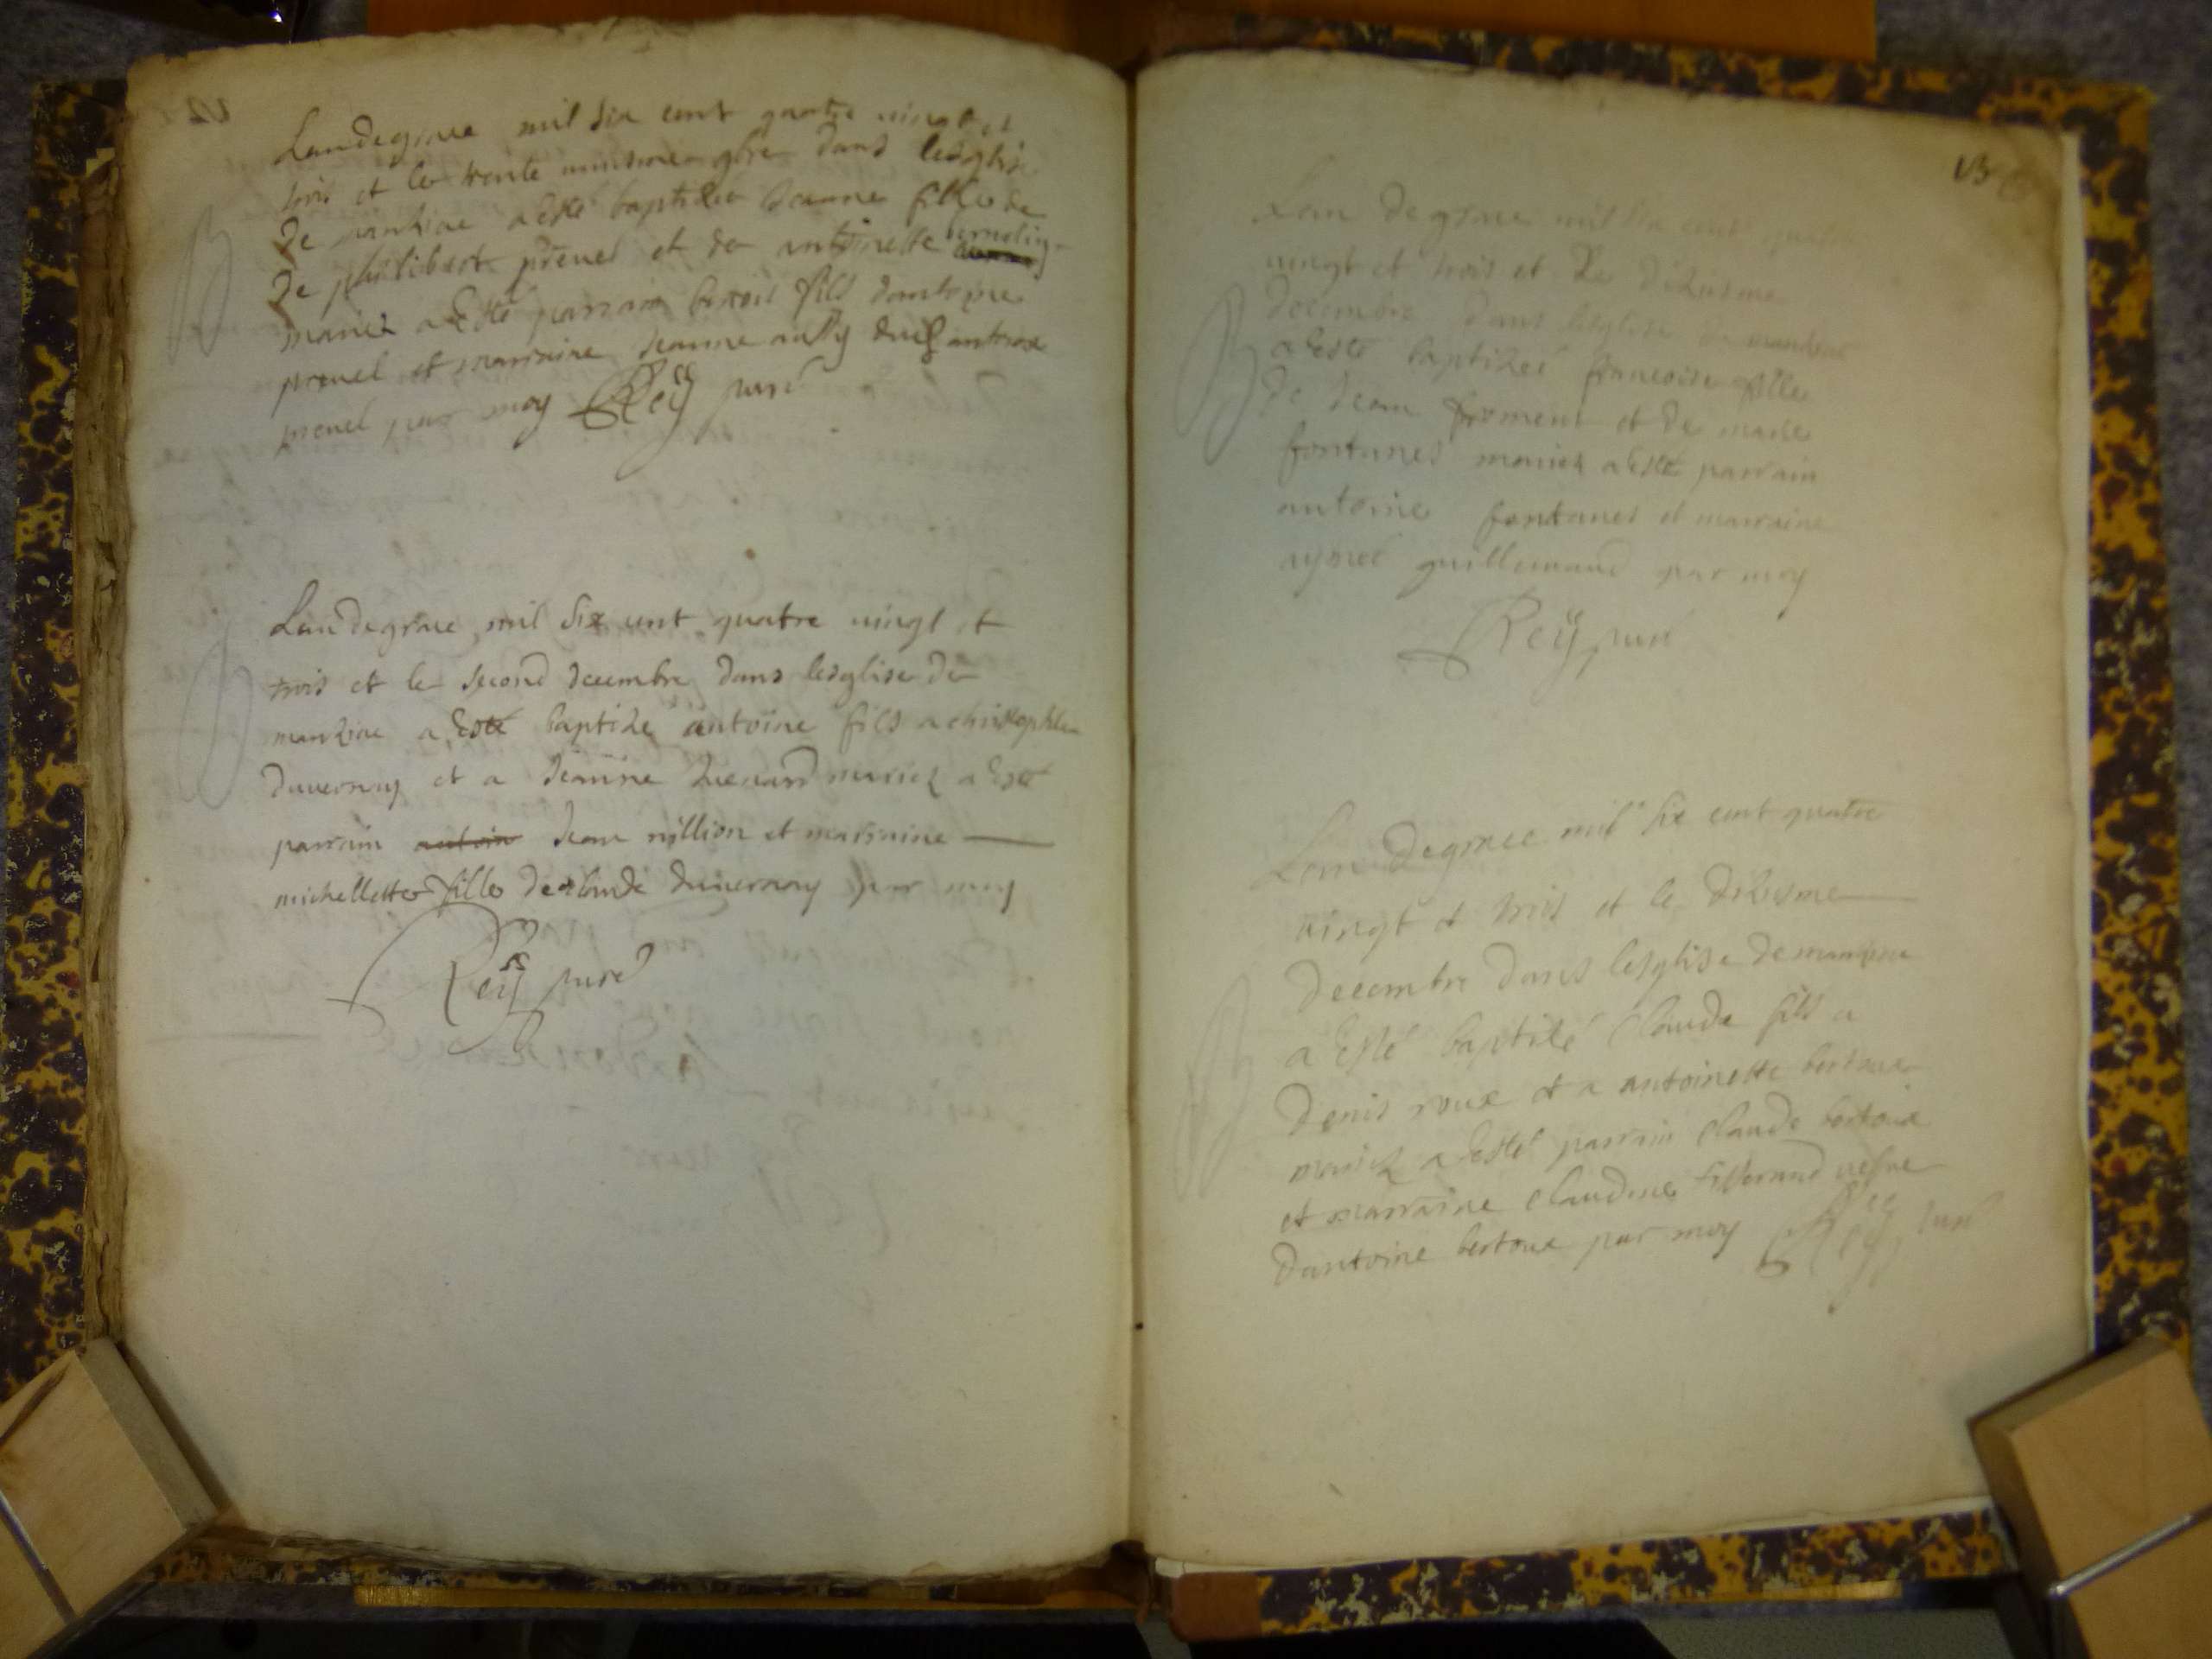 Lan de grace mil six cent quatre vingt et
trois et le trente 9bre dans lesglise
de manziac a esté baptizée Jeanne fille de
de philibert prenel et de antoinette
mariez a esté parrain benoit fils dantoine
prenel et marraine Jeanne
prenel par moy Rey curé
Lan de grace mil six cent quatre vingt et
trois et le second decembre dans lesglise de
manziac a esté baptizé antoine fils a christophle
duvernay et a Jeanne mariez a esté
parrain antoin Jean nillion et marraine
michellette fille de claude duvernay par moy
Rey curé
13
Lan de grace mil six cent quatre
vingt et trois et le dixiesme
decembre dans lesglise de manziac
a esté baptizée francoise fille
de Jean froment et de marie
fontanes mariez a esté parrain
antoine fontanes et marraine
guillemaud par moy
Rey curé
Lan de grace mil six cent quatre
vingt et trois et le dixiesme
decembre dans lesglise de manziac
a esté baptizé Claude fils a
denis roux et a antoinette bertoux
mariez a esté parrain Claude bertoux
et marraine Claudine vefve
dantoine bertoux par moy Rey curé